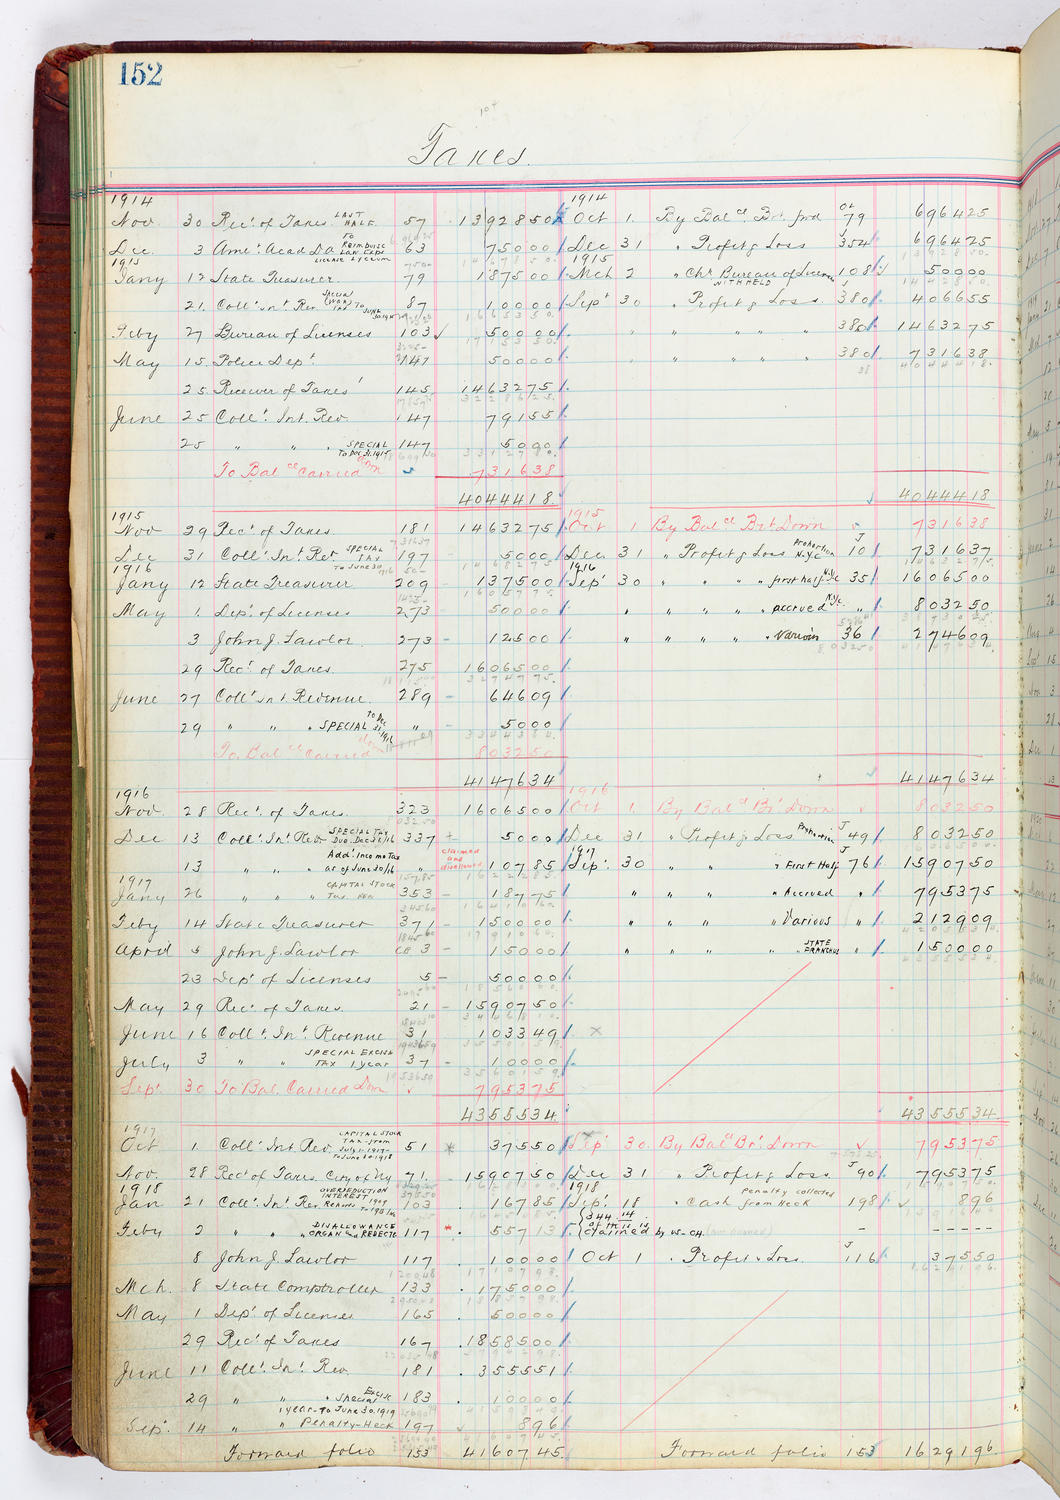 152
Taxes.
1914 1914
Nov 30 Rec. of Taxes LAST HALF 57 1392850 Oct 1. By Balce Bot. fwd 79 696425
Dec 3 Ame. Acad D.A. To Reimburse Law Exps License Lyceum 63 75000 Dec 31 " Profit & Loss 354 696425
1915 1915
Jany 12 State Treasurer. 79 187500 Mch 2 " Chk Bureau of Licenses WITHHELD 108 50000
21. Coll. Int. Rev. 87 10000 Sept 30 " Profit & Loss. 380 406655
Feby 27 Bureau of Licenses 103 50000 " " " " " 380 1463275
May 15. Police Dept 147 50000 " " " " 380 731638
25. Receiver of Taxes 145. 1463275
June 25 Coll. Int. Rev. 147 79155
25 " " " SPECIAL To Dec. 31. 1915 147 5000
To Balce Carried 731638
4044418 4044418
1915 1915
Nov 29 Rec. of Taxes 181 1463275 Oct 1 By Balce Bot Down 731638
Dec 31 Coll. Int. Rev SPECIAL TAX To June 30, 1916 197 5000 Dec 31 " Profit & Loss Proportion N.Y.C 10 731637
1916 1916
Jany 12 State Treasurer 209 137500 Sep. 30 " " " " first half N.Y.C 35 1606500
May 1. Dep. of Licenses 273 50000 " " " " accrued N.Y.C. " 803250
3 John J. Lawlor. 273 12500 " " " " " Various 36 274609
29 Rec. of Taxes. 275 1606500
June 27 Coll. Int. Revenue. 289 64609
29 " " " SPECIAL To Dec 31, 1916 " 5000
To Balce Carried 803250
4147634 4147634
1916 1916
Nov. 28 Rec. of Taxes. 323 1606500 Oct 1. By Balce Bt. Down 803250
Dec 13 Coll. Int. Rev SPECIAL TAX Due. Dec 31/16 337 5000 Dec 31 " Profit & Loss Proportion 49 803250
1917
13 " " " Add. Income Tax as of June 30/16 " claimed and disallowed 10785 Sep. 30 " " " First Half 76 1590750
1917
Jany 26 " " " CAPITAL STOCK 353 18775 " " " " Accrued " 795375
Feby 14 State Treasurer 371 150000 " " " " Various " 212909
April 5 John J. Lawlor CB 3 15000 " " " " STATE FRANCHISE " 150000
23 Dep. of Licenses 5 50000
May 29 Rec. of Taxes. 21 1590750
June 16 Coll. Int. Revenue 31 103349
July 3 " " SPECIAL EXCISE TAX 1 year 37 10000
Sep. 30 To Bal. Carried Down 795375
4355534 4355534
1917
Oct 1. Coll. Int. Rev. CAPITAL STOCK TAX-from July 1-1917- To June 30-1918 51 37550 Sep. 30 By Balce Bt. Down 795375
Nov. 28 Rec. of Taxes. City of N.Y. 71 1590750 Dec 31 " Profit & Loss. 90 795375
1918 1918
Jan 21 Coll. Int. Rev. 103 16785 Sep. 18 " Cash from Heck Penalty collected 198 896
Feby 2 " " " DISALLOWANCE 117 557 13 claimed by us
8 John J. Lawlor 117 10000 Oct 1 " Profit & Loss. 116 37550
Mch. 8 State Comptroller 133 175000
May 1 Dep. of Licenses 165 50000
29 Rec. of Taxes 167 1858500
June 11 Coll. Int. Rev. 181 355551
29 " " " Special Excise 1 year-To June 30. 1919 183 10000
Sep. 14 " " Penalty-Heck 197 896
Forward folio 153 4160745 Forward folio 153 1629196